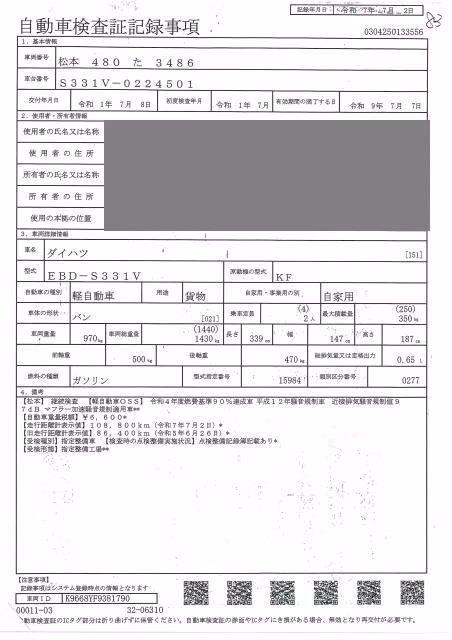 自動車検査証記録事項
記録年月日：令和 7年 7月 2日
0304250133556
1．基本情報
車両番号 松本 480 た 3486
車台番号 S331V-0224501
交付年月日 令和 1年 7月 8日 初度検査年月 令和 1年 7月 有効期間の満了する日 令和 9年 7月 7日
2．使用者・所有者情報
使用者の氏名又は名称
使用者の住所
所有者の氏名又は名称
所有者の住所
使用の本拠の位置
3．車両詳細情報
車名 ダイハツ [151]
型式 EBD-S331V 原動機の型式 KF
自動車の種別 軽自動車 用途 貨物 自家用・事業用の別 自家用
車体の形状 バン [021] 乗車定員 (4) 2人 最大積載量 (250) 350kg
車両重量 970kg 車両総重量 (1440) 1430kg 長さ 339cm 幅 147cm 高さ 187cm
前軸重 500kg 後軸重 470kg 総排気量又は定格出力 0.65 L
燃料の種類 ガソリン 型式指定番号 15984 類別区分番号 0277
4．備考
【松本】 継続検査 【軽自動車OSS】 令和4年度燃費基準90％達成車 平成12年騒音規制車 近接排気騒音規制値9
7dB マフラー加速騒音規制適用車**
【自動車重量税額】￥6，600*
【走行距離計表示値】108，800km（令和7年7月2日）*
【旧走行距離計表示値】86，400km（令和5年6月26日）*
【受検種別】指定整備車 【検査時の点検整備実施状況】点検整備記録簿記載あり*
【受検形態】指定整備工場**
【注意事項】
記録事項はシステム登録時点の情報となります
車両ID K9668YF9381790
00011-03 32-06310
自動車検査証のICタグ部分は折り曲げずに保管ください。自動車検査証の券面やICタグにき損がある場合、無効となり再交付が必要です。